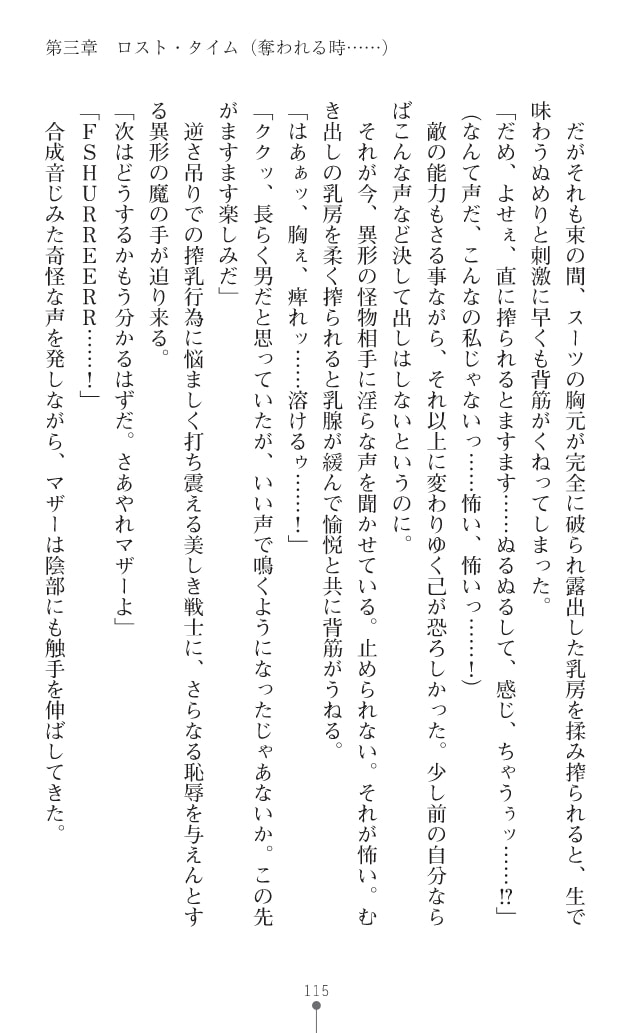 第三章　ロスト・タイム（奪われる時……）
だがそれも束の間、スーツの胸元が完全に破られ露出した乳房を揉み搾られると、生で
味わうぬめりと刺激に早くも背筋がくねってしまった。
「だめ、よせぇ、直に搾られるとますます……ぬるぬるして、感じ、ちゃうぅッ……!?」
（なんて声だ、こんなの私じゃないっ……怖い、怖いっ……！）
敵の能力もさる事ながら、それ以上に変わりゆく己が恐ろしかった。少し前の自分なら
ばこんな声など決して出しはしないというのに。
それが今、異形の怪物相手に淫らな声を聞かせている。止められない。それが怖い。む
き出しの乳房を柔く搾られると乳腺が緩んで愉悦と共に背筋がうねる。
「はあぁッ、胸ぇ、痺れッ……溶けるゥ……！」
「ククッ、長らく男だと思っていたが、いい声で鳴くようになったじゃあないか。この先
がますます楽しみだ」
逆さ吊りでの搾乳行為に悩ましく打ち震える美しき戦士に、さらなる恥辱を与えんとす
る異形の魔の手が迫り来る。
「次はどうするかもう分かるはずだ。さあやれマザーよ」
「ＦＳＨＵＲＲＥＥＲＲ……！」
合成音じみた奇怪な声を発しながら、マザーは陰部にも触手を伸ばしてきた。
115